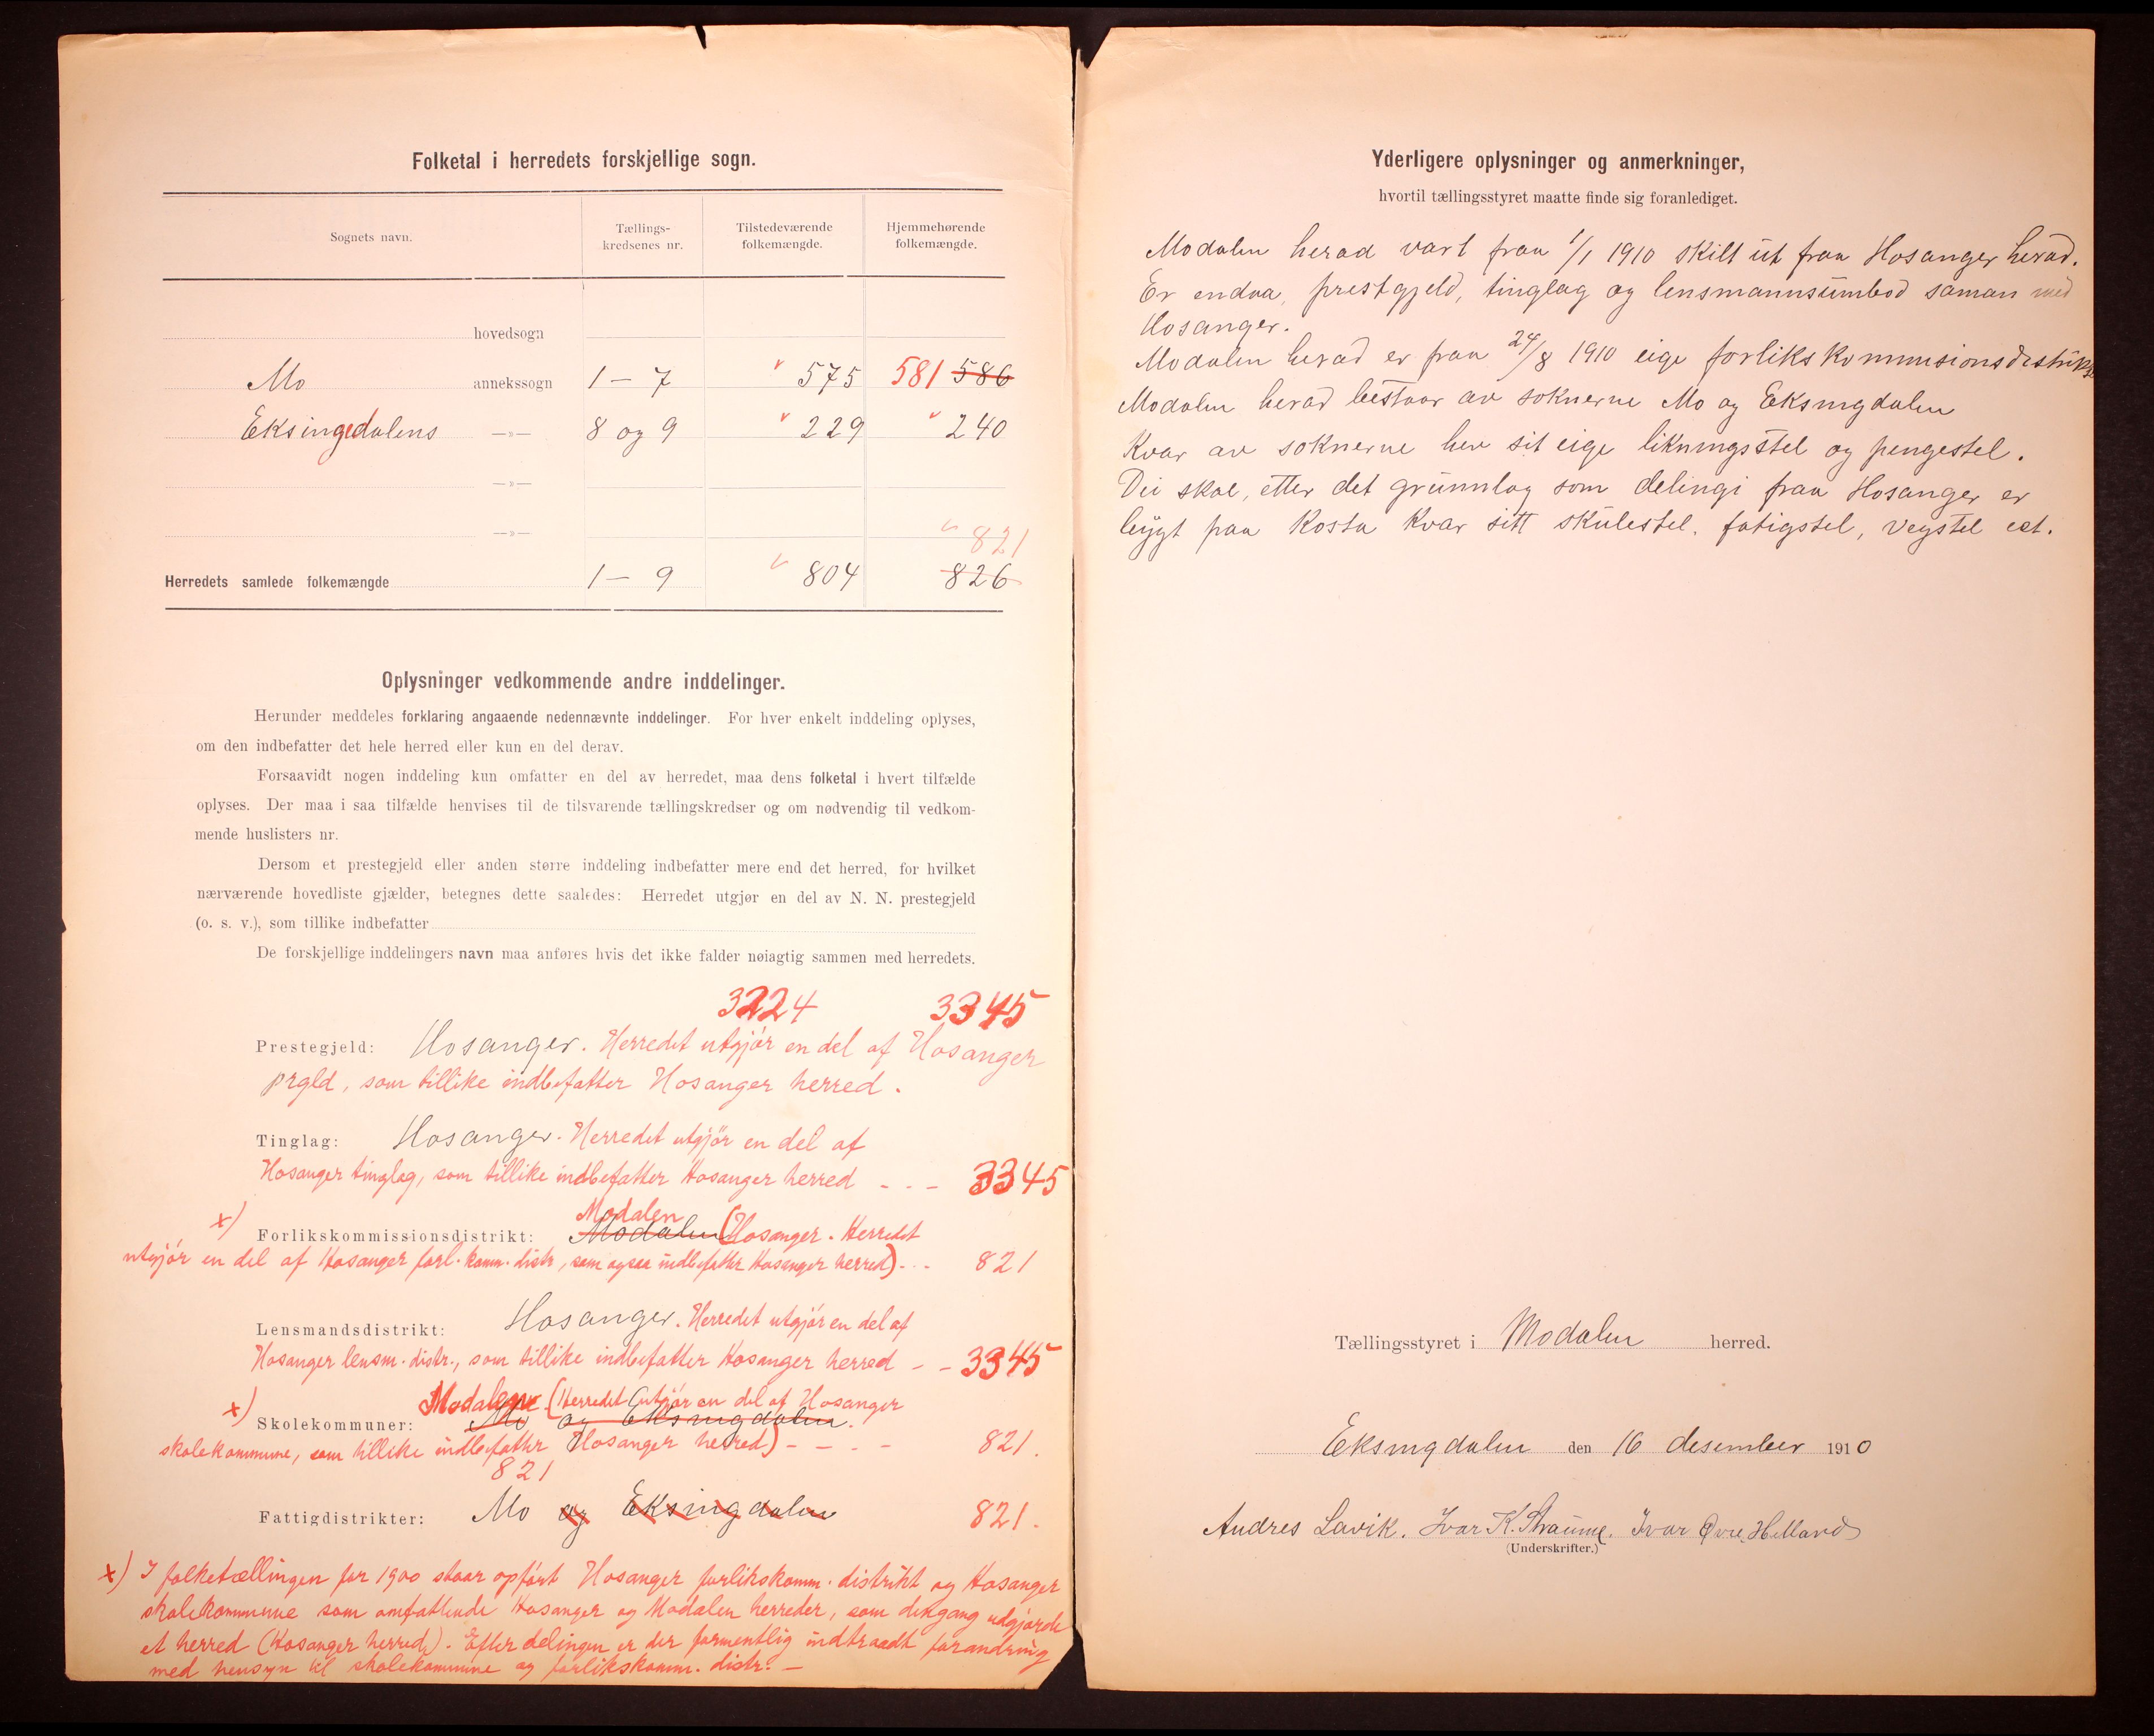 Folketal i herredets forskjellige sogn.
Sognets navn.
Tællings-
kredsenes nr.
Tilstedeværende
folkemængde.
Hjemmehørende
folkemængde.
hovedsogn
Mo annekssogn 1 — 7 575 581 586
Eksingedalens —»— 8 og 9 229 240
—»—
—»— 821
Herredets samlede folkemængde 1 — 9 804 826
Oplysninger vedkommende andre inddelinger.
Herunder meddeles forklaring angaaende nedennævnte inddelinger. For hver enkelt inddeling oplyses,
om den indbefatter det hele herred eller kun en del derav.
Forsaavidt nogen inddeling kun omfatter en del av herredet, maa dens folketal i hvert tilfælde
oplyses. Der maa i saa tilfælde henvises til de tilsvarende tællingskredser og om nødvendig til vedkom-
mende huslisters nr.
Dersom et prestegjeld eller anden større inddeling indbefatter mere end det herred, for hvilket
nærværende hovedliste gjælder, betegnes dette saaledes: Herredet utgjør en del av N. N. prestegjeld
(o. s. v.), som tillike indbefatter
De forskjellige inddelingers navn maa anføres hvis det ikke falder nøiagtig sammen med herredets.
3224 3345
Prestegjeld: Hosanger. Herredet utgjør en del af Hosanger
prgld, som tillike indbefatter Hosanger herred.
Tinglag: Hosanger. Herredet utgjør en del af
Hosanger tinglag, som tillike indbefatter Hosanger herred - - - 3345
Modalen
x) Forlikskommissionsdistrikt: Modalen (Hosanger. Herredet
utgjør en del af Hosanger forl. komm. distr, som ogsaa indbefatter Hosanger herred) - - 821
Lensmandsdistrikt: Hosanger. Herredet utgjør en del af
Hosanger lensm. distr., som tillike indbefatter Hosanger herred - - 3345
Modalen. (Herredet utgjør en del af Hosanger
x) Skolekommuner: Mo og Eksingdalen.
skolekommune, som tillike indbefatter Hosanger herred) - - - - 821.
821
Fattigdistrikter: Mo og Eksingdalen 821.
x) I folketællingen for 1900 staar opført Hosanger forlikskomm. distrikt og Hosanger
skolekommune som omfattende Hosanger og Modalen herreder, som dengang udgjorde
et herred (Hosanger herred). Efter delingen er der formentlig indtraadt forandring
med hensyn til skolekommune og forlikskomm. distr. —
Yderligere oplysninger og anmerkninger,
hvortil tællingsstyret maatte finde sig foranlediget.
Modalen herad vart fraa 1/1 1910 skilt ut fraa Hosanger herad.
Er endaa, prestgjeld, tinglag og lensmannsumbod saman med
Hosanger.
Modalen herad er fraa 24/8 1910 eige forlikskommisionsdistrikt
Modalen herad bestaar av soknerne Mo og Eksingdalen
Kvar av soknerne hev sit eige likningsstel og pengestel.
Dei skal, etter det grunnlag som delingi fraa Hosanger er
bygt paa kosta kvar sitt skulestel, fatigstel, vegstel ect.
Tællingsstyret i Modalen herred.
Eksingdalen den 16 desember 1910
Andres Lavik. Ivar K. Straume. Ivar Øvre Helland
(Underskrifter.)